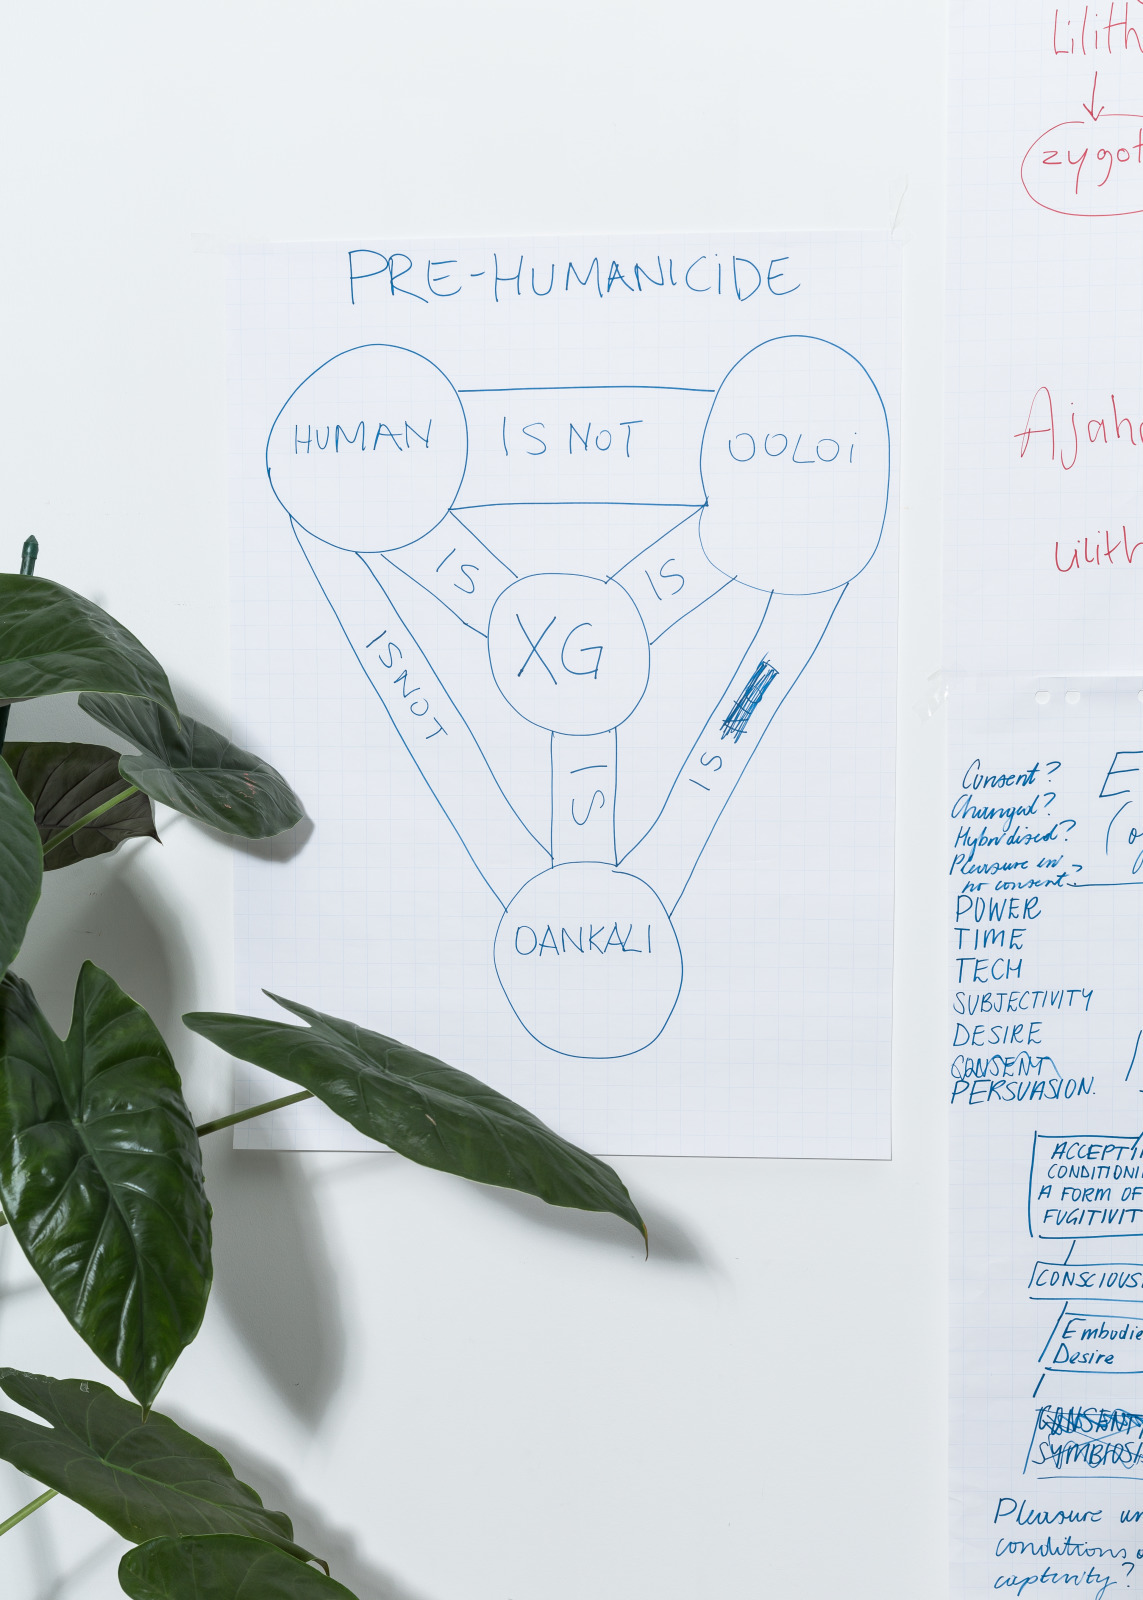 PRE-HUMANICIDE
HUMAN
IS NOT
OOLOi
IS
IS
XG
IS NOT
IS
IS
OANKALI
Lilith
zygot
Ajaha
Lilith
Consent?
Changed?
Hybridised?
Pleasure in
no consent?
E
POWER
TIME
TECH
SUBJECTIVITY
DESIRE
CONSENT
PERSUASION.
ACCEPTI
CONDITIONI
A FORM OF
FUGITIVIT
CONSCIOUS
Embodie
Desire
CONSENT
SYMBIOSI
Pleasure un
conditions o
captivity?